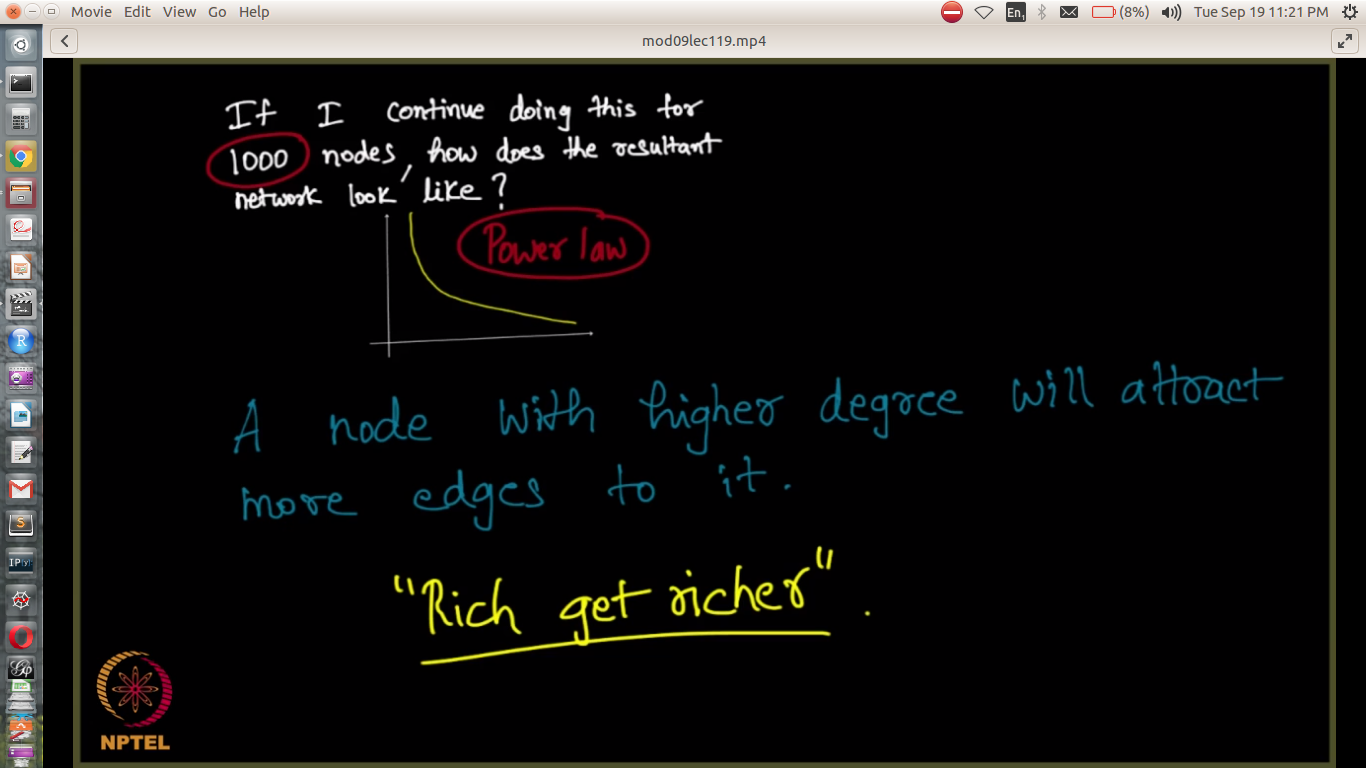 Movie Edit View Go Help
En1 (8%) Tue Sep 19 11:21 PM
mod09lec119.mp4
If I continue doing this for
1000 nodes, how does the resultant
network look like?
Power law
A node with higher degree will attract
more edges to it.
"Rich get richer".
NPTEL
R
S
IP[y]:
Gp